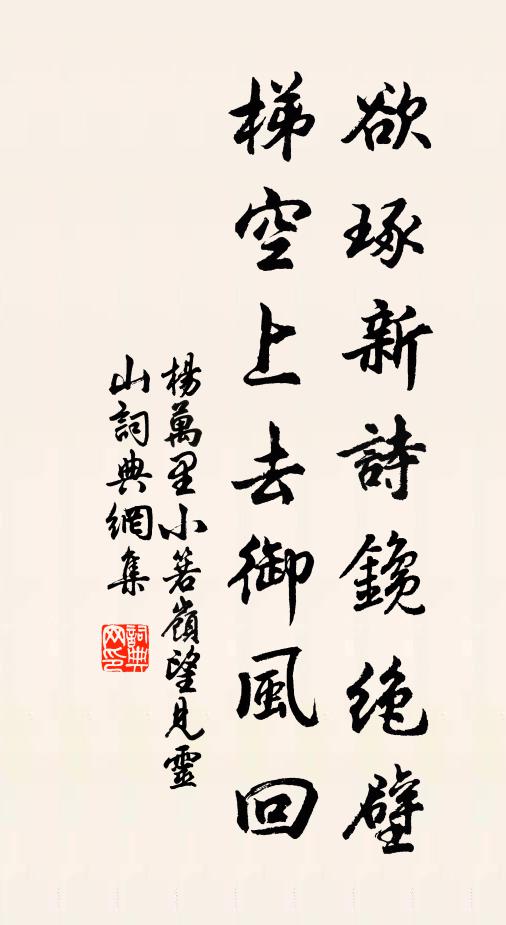 欲琢新詩鑱絶壁
梯空上去御風回
楊萬里小箬嶺望見靈
山詞典網集
詞典
网印